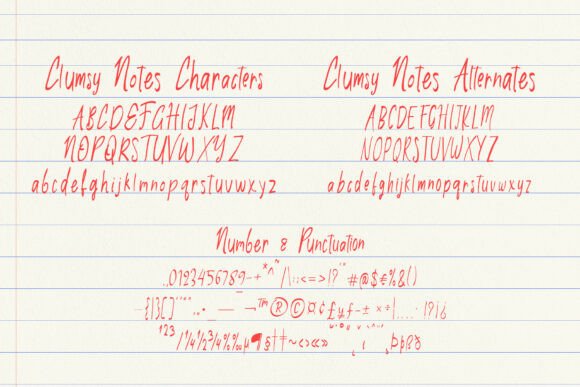 Clumsy Notes Characters
ABCDEFGHIJKLM
NOPQRSTUVWXYZ
abcdefghijklmnopqrstuvwxyz
Clumsy Notes Alternates
ABCDEFGHIJKLM
NOPQRSTUVWXYZ
abcdefghijklmnopqrstuvwxyz
Number & Punctuation
.,0123456789-+*^~"/|\:;<=>!?'"#@$€%&()
-{|}[]'""",.•·_—¬™®©¤¢£¥ƒ-±×÷!....·!?¡¿
123/¼½¾%‰µ¶§†‡~‹›«»